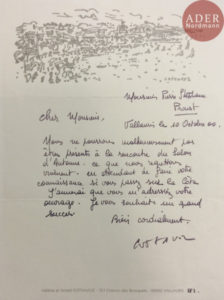 ADER
Nordmann
Monsieur Pierre Stéphane
Proust
Cher Monsieur,
Vallauris le 10 Octobre 00.
Nous ne pourrons malheureusement pas
être présents à la rencontre du Salon
d'Automne. ce que nous regrettons
vraiment. en attendant de faire votre
connaissance si vous passez sur la Côte
J'aimerai que vous m'adressiez votre
ouvrage. Je vous souhaite un grand
succès
Bien cordialement.